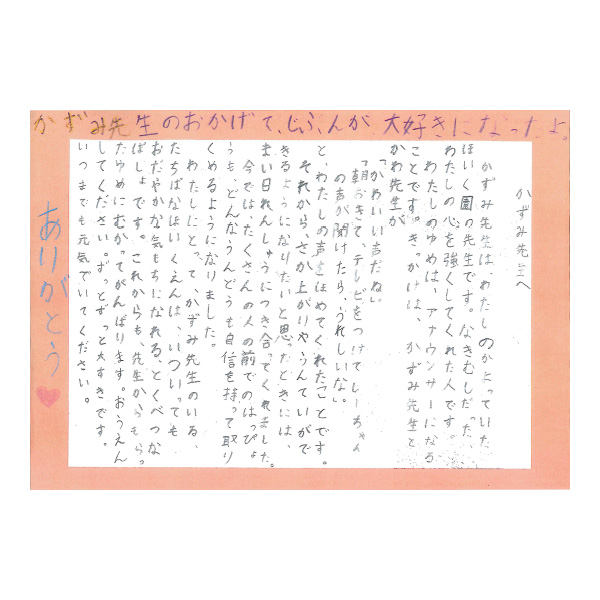 かずみ先生のおかげで、じぶんが大好きになったよ。
かずみ先生へ
かずみ先生は、わたしのかよっていた
ほいく園の先生です。なきむしだった、
わたしの心を強くしてくれた人です。
わたしのゆめは、アナウンサーになる
ことです。きっかけは、かずみ先生と
かわ先生が
「かわいい声だね。」
「朝おきて、テレビをつけてしーちゃん
の声が聞けたら、うれしいな。」
と、わたしの声をほめてくれたことです。
それから、さか上がりやうんていがで
きるようになりたいと思ったときには、
まい日れんしゅうにつき合ってくれました。
今では、たくさんの人の前でのはっぴょ
うも、どんなうんどうも自信を持って取り
くめるようになりました。
わたしにとって、かずみ先生のいる、
たちばなほいくえんは、いついっても
おだやかな気もちになれる、とくべつな
ばしょです。これからも、先生からもらっ
たゆめにむかってがんばります。おうえん
してください。ずっとずっと大すきです。
いつまでも元気でいてください。
ありがとう